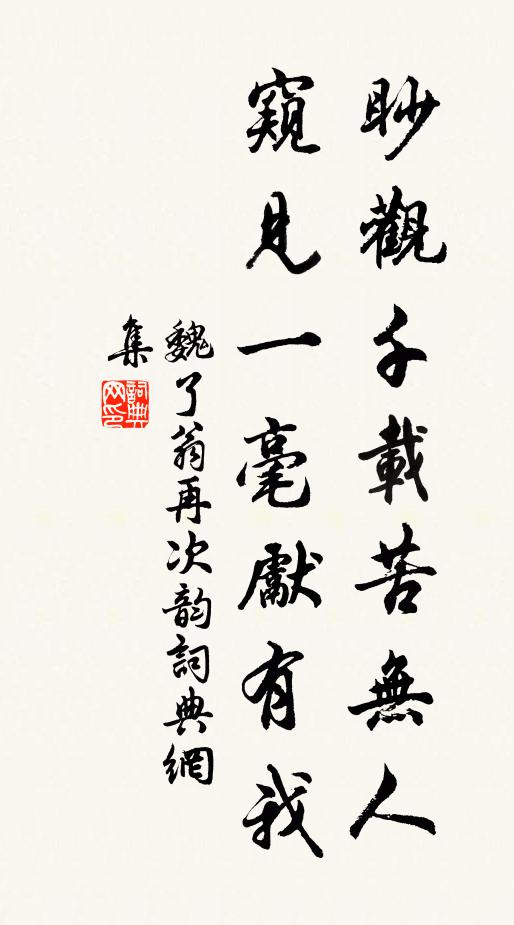 眇觀千載苦無人
窺見一毫獻有我
魏了翁再次韵詞典網
集
詞典
网印